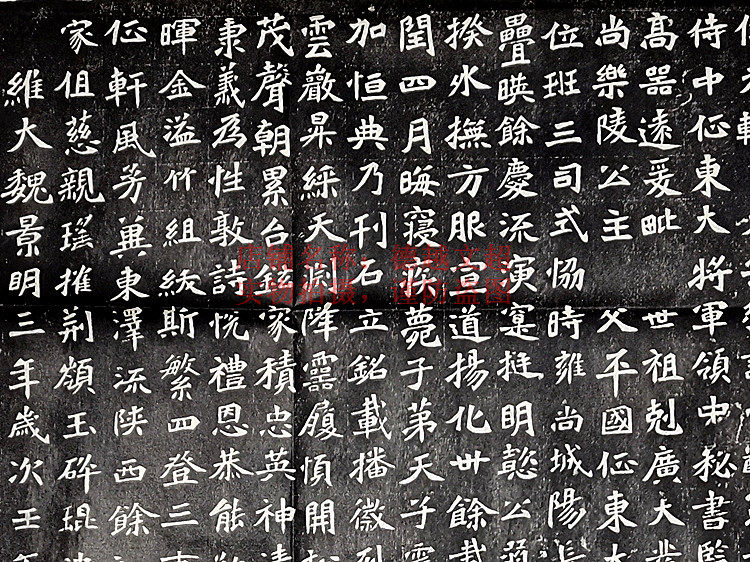 侍中征東大將軍領中秘書監
高器遠爰毗 世祖剋廣大
尚樂陵公主 父平國征東大
位班三司式協時雍尚城陽長
疊映餘慶流演寔挺明懿公
揆水撫方服宣道揚化卅餘載
閏四月晦寢疾薨于第天子震
加恒典乃刊石立銘載播徽烈
雲巖昇綵天澍降靈履順開
茂聲朝累台鉉家積忠英神清
秉義為性敦詩悅禮恩恭能
暉金溢竹組紱斯繁四登三
征軒風芳冀東澤流陝西餘
家徂慈親瑤摧荊頹玉碎琨
維大魏景明三年歲次壬
店铺名称：
实物拍摄，谨防盗图